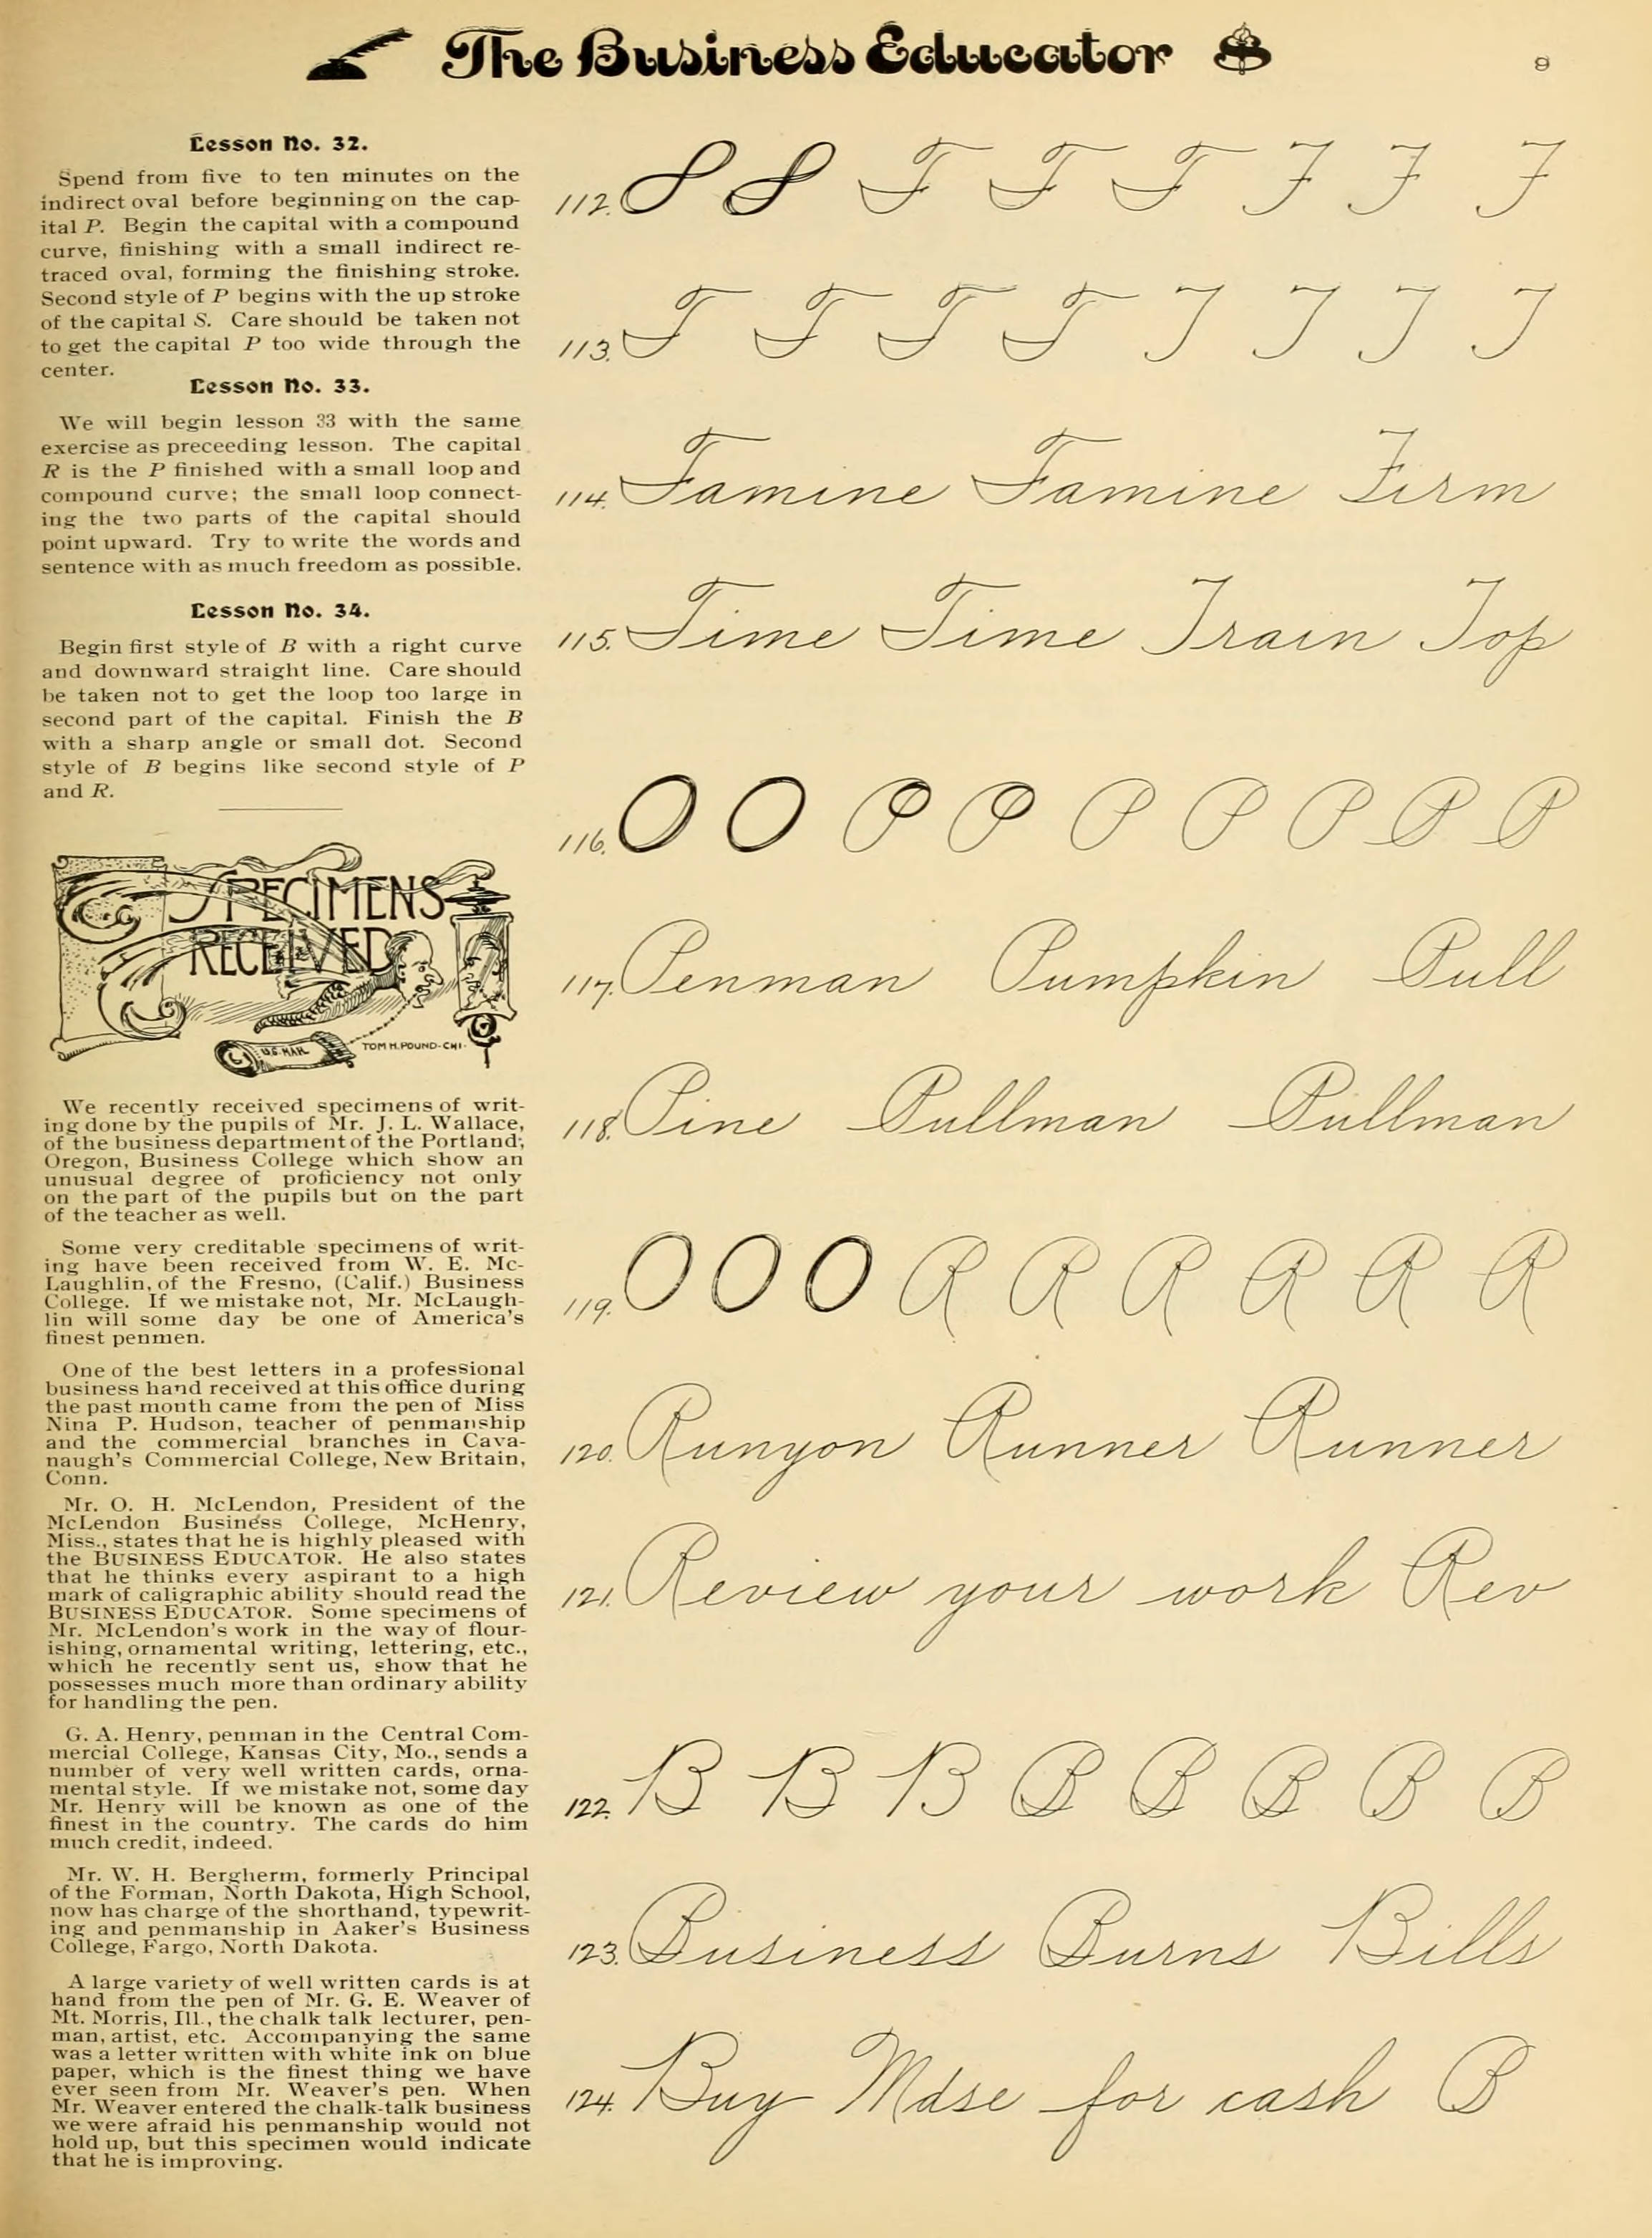 The Business Educator
9
Lesson No. 32.
Spend from five to ten minutes on the
indirect oval before beginning on the cap-
ital P. Begin the capital with a compound
curve, finishing with a small indirect re-
traced oval, forming the finishing stroke.
Second style of P begins with the up stroke
of the capital S. Care should be taken not
to get the capital P too wide through the
center.
Lesson No. 33.
We will begin lesson 33 with the same
exercise as preceeding lesson. The capital
R is the P finished with a small loop and
compound curve; the small loop connect-
ing the two parts of the capital should
point upward. Try to write the words and
sentence with as much freedom as possible.
Lesson No. 34.
Begin first style of B with a right curve
and downward straight line. Care should
be taken not to get the loop too large in
second part of the capital. Finish the B
with a sharp angle or small dot. Second
style of B begins like second style of P
and R.
SPECIMENS
RECEIVED
U.S. MAIL
TOM H. POUND-CHI-
We recently received specimens of writ-
ing done by the pupils of Mr. J. L. Wallace,
of the business department of the Portland,
Oregon, Business College which show an
unusual degree of proficiency not only
on the part of the pupils but on the part
of the teacher as well.
Some very creditable specimens of writ-
ing have been received from W. E. Mc-
Laughlin, of the Fresno, (Calif.) Business
College. If we mistake not, Mr. McLaugh-
lin will some day be one of America's
finest penmen.
One of the best letters in a professional
business hand received at this office during
the past month came from the pen of Miss
Nina P. Hudson, teacher of penmanship
and the commercial branches in Cava-
naugh's Commercial College, New Britain,
Conn.
Mr. O. H. McLendon, President of the
McLendon Business College, McHenry,
Miss., states that he is highly pleased with
the BUSINESS EDUCATOR. He also states
that he thinks every aspirant to a high
mark of caligraphic ability should read the
BUSINESS EDUCATOR. Some specimens of
Mr. McLendon's work in the way of flour-
ishing, ornamental writing, lettering, etc.,
which he recently sent us, show that he
possesses much more than ordinary ability
for handling the pen.
G. A. Henry, penman in the Central Com-
mercial College, Kansas City, Mo., sends a
number of very well written cards, orna-
mental style. If we mistake not, some day
Mr. Henry will be known as one of the
finest in the country. The cards do him
much credit, indeed.
Mr. W. H. Bergherm, formerly Principal
of the Forman, North Dakota, High School,
now has charge of the shorthand, typewrit-
ing and penmanship in Aaker's Business
College, Fargo, North Dakota.
A large variety of well written cards is at
hand from the pen of Mr. G. E. Weaver of
Mt. Morris, Ill., the chalk talk lecturer, pen-
man, artist, etc. Accompanying the same
was a letter written with white ink on blue
paper, which is the finest thing we have
ever seen from Mr. Weaver's pen. When
Mr. Weaver entered the chalk-talk business
we were afraid his penmanship would not
hold up, but this specimen would indicate
that he is improving.
112. F F F F F F
113. T T T T T T T T
114. Famine Famine Firm
115. Time Time Train Top
116. O O P P P P P P P
117. Penman Pumpkin Pull
118. Pine Pullman Pullman
119. O O O R R R R R R
120. Runyon Runner Runner
121. Review your work Rev
122. B B B B B B B B
123. Business Burns Bills
124. Buy Mdse for cash B